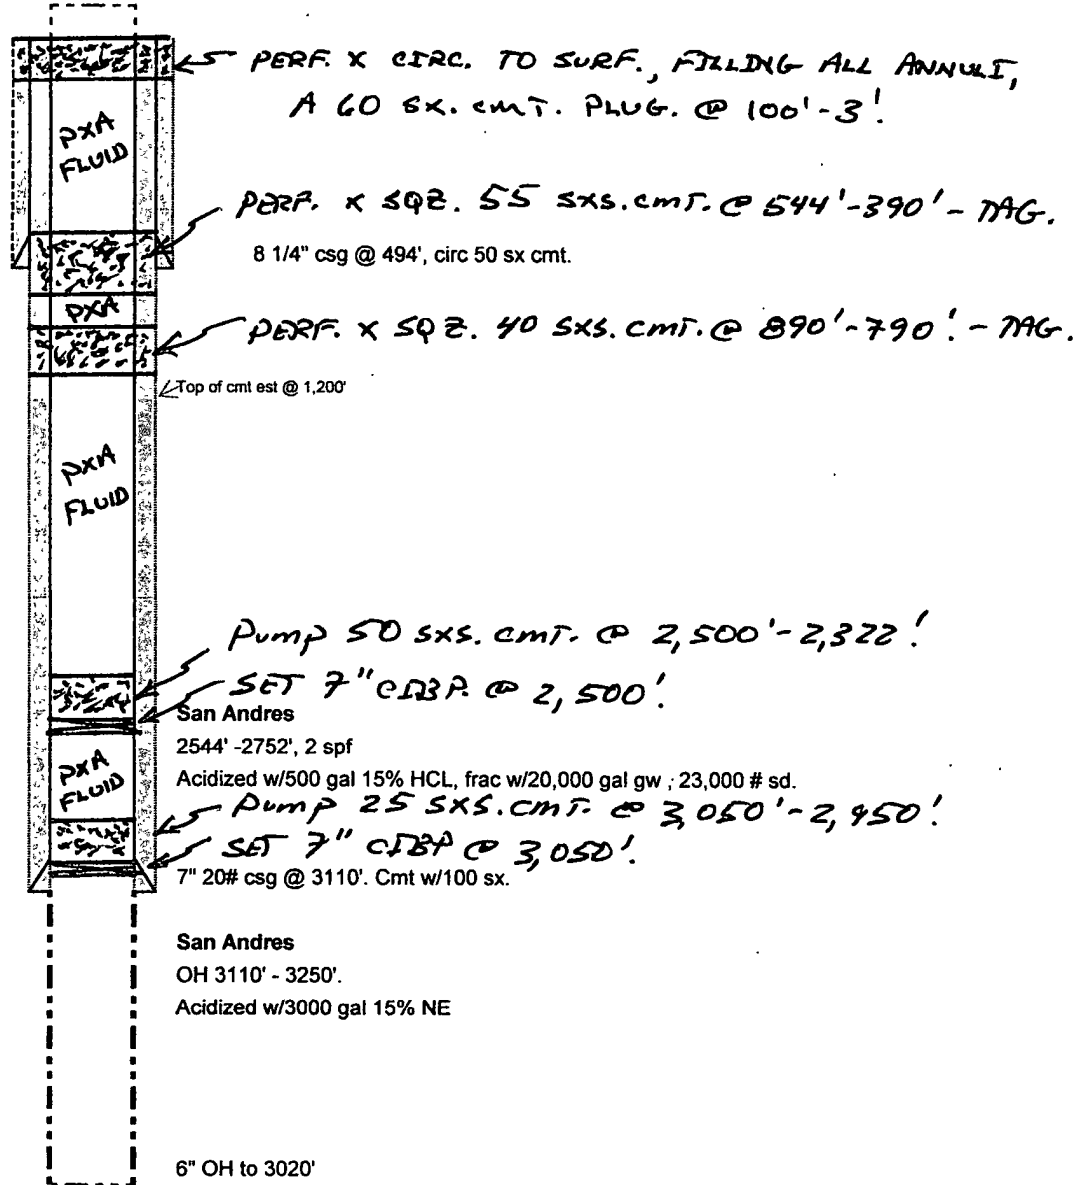 PERF. X CIRC. TO SURF., FILLING ALL ANNULI,
A 60 SX. CMT. PLUG. @ 100'-3'.
PXA
FLUID
PERF. X SQZ. 55 SXS. CMT. @ 544'-390' - TAG.
8 1/4" csg @ 494', circ 50 sx cmt.
PXA
PERF. X SQZ. 40 SXS. CMT. @ 890'-790'. - TAG.
Top of cmt est @ 1,200'
PXA
FLUID
Pump 50 SXS. CMT. @ 2,500'-2,322'.
SET 7" CIBP. @ 2,500'.
San Andres
2544' -2752', 2 spf
PXA
FLUID
Acidized w/500 gal 15% HCL, frac w/20,000 gal gw ; 23,000 # sd.
Pump 25 SXS. CMT. @ 3,050'-2,950'.
SET 7" CIBP @ 3,050'.
7" 20# csg @ 3110'. Cmt w/100 sx.
San Andres
OH 3110' - 3250'.
Acidized w/3000 gal 15% NE
6" OH to 3020'